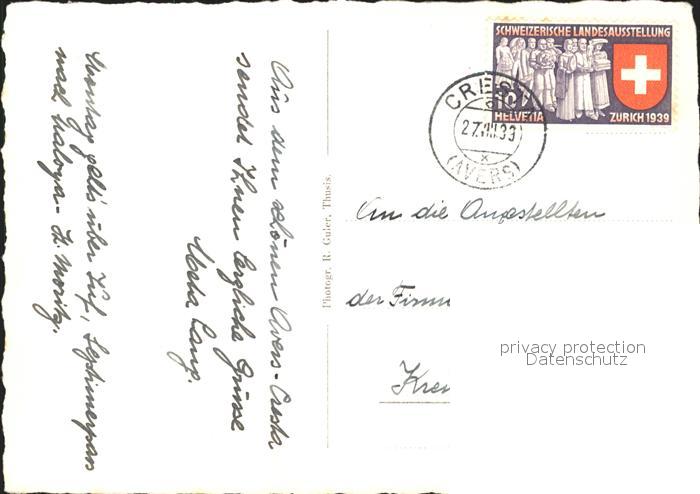 SCHWEIZERISCHE LANDESAUSSTELLUNG
HELVETIA ZURICH 1939
CRESTA
27.VII.39
(AVERS)
Aus dem schönen Avers-Cresta
sendet Ihnen herzliche Grüsse
Lang.
Montag geht's über Juf, Septimerpass
nach Maloya - St. Moritz.
Photogr. R. Guler, Thusis.
An die Angestellten
der Firm
Kre
privacy protection
Datenschutz